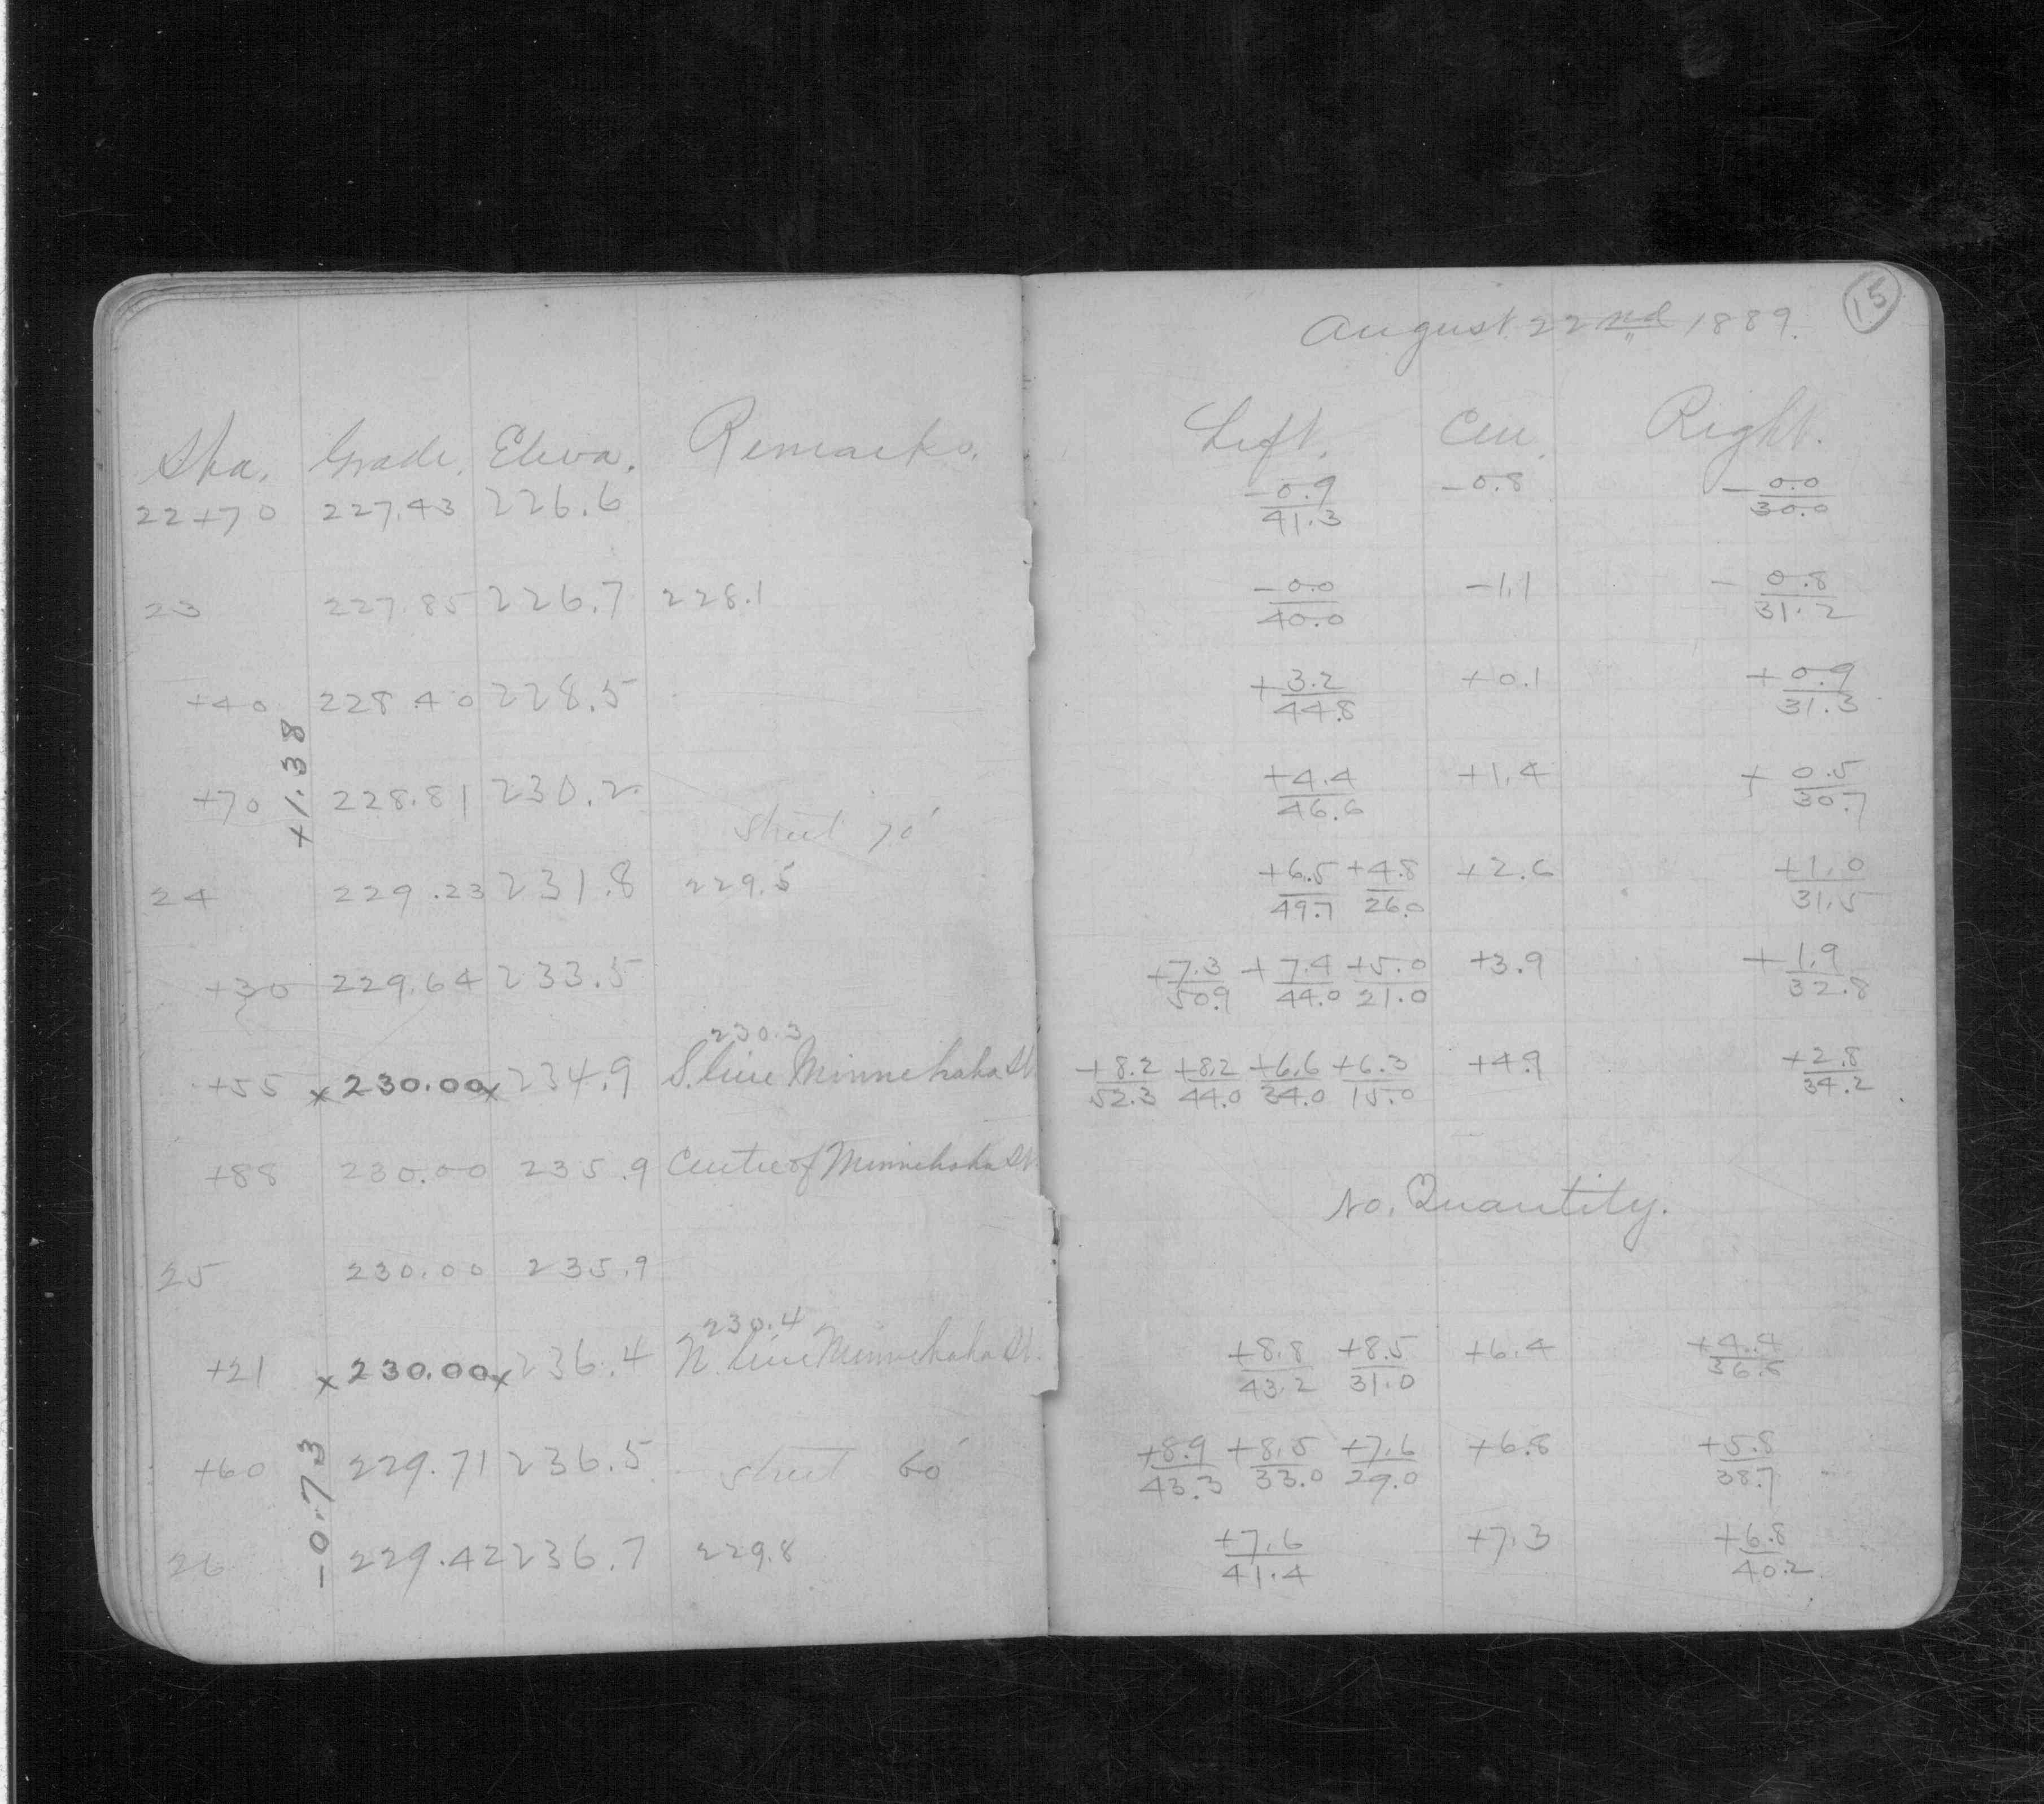 15
August 22nd 1889.
Sta. Grade. Eleva. Remarks. Left. Cen. Right.
22+70 227.43 226.6 -0.9/41.3 -0.8 -0.0/30.0
23 227.85 226.7 228.1 -0.0/40.0 -1.1 -0.8/31.2
+40 228.40 228.5 +3.2/44.8 +0.1 +0.9/31.3
+1.38
+70 228.81 230.2 +4.4/46.6 +1.4 +0.5/30.7
street 70'
24 229.23 231.8 229.5 +6.5/49.7 +4.8/26.0 +2.6 +1.0/31.5
+30 229.64 233.5 +7.3/50.9 +7.4/44.0 +5.0/21.0 +3.9 +1.9/32.8
230.3
+55 x 230.00 x 234.9 S. line Minnehaha St +8.2/52.3 +8.2/44.0 +6.6/34.0 +6.3/15.0 +4.9 +2.8/34.2
+88 230.00 235.9 Centre of Minnehaha St.
No. Quantity.
25 230.00 235.9
230.4
+21 x 230.00 x 236.4 N. line Minnehaha St. +8.8/43.2 +8.5/31.0 +6.4 +4.4/36.6
+60 229.71 236.5 street 60' +8.9/43.3 +8.5/33.0 +7.6/29.0 +6.8 +5.8/38.7
-0.73
26 229.42 236.7 229.8 +7.6/41.4 +7.3 +6.8/40.2